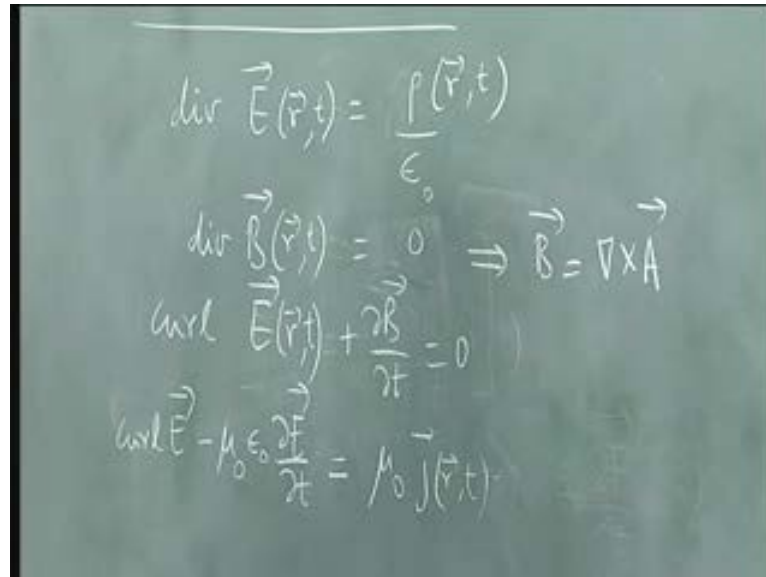 div E⃗(r⃗,t) = ρ(r⃗,t)/ε₀
div B⃗(r⃗,t) = 0 ⇒ B⃗ = ∇×A⃗
curl E⃗(r⃗,t) + ∂B⃗/∂t = 0
curl E⃗ - μ₀ε₀ ∂E⃗/∂t = μ₀ j⃗(r⃗,t)